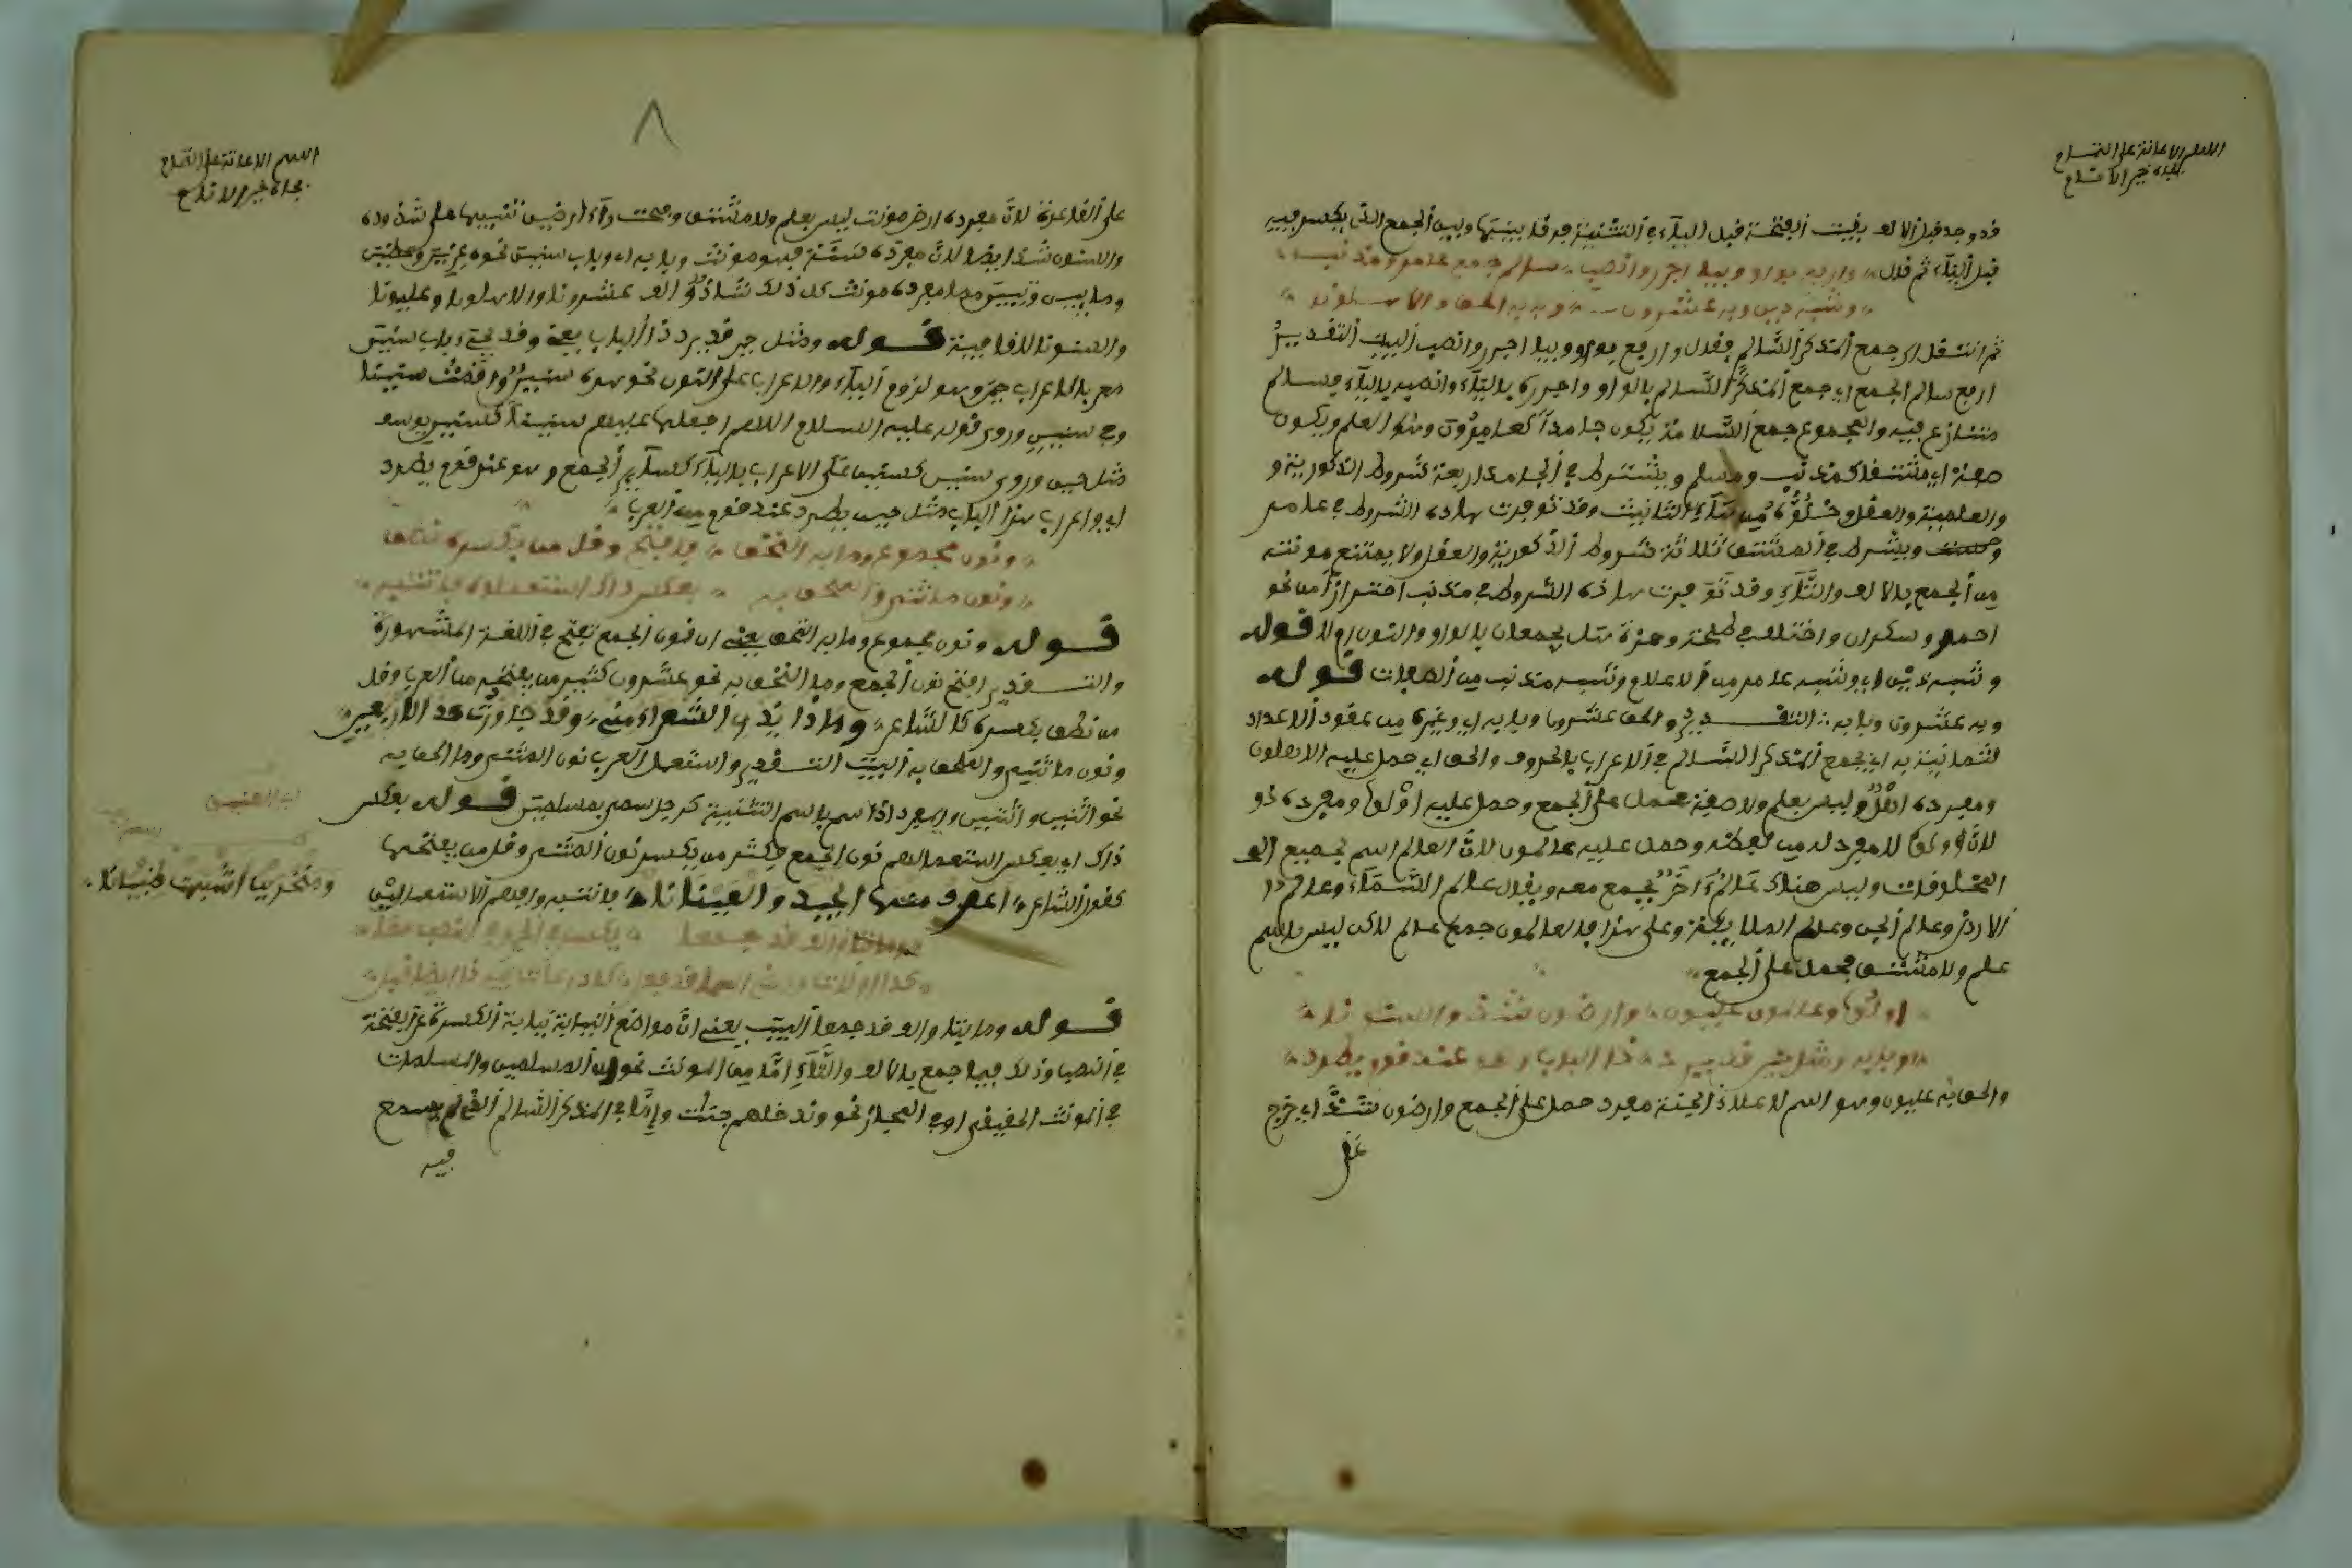 اللهم الاعانة على التمام
بجاه خير الانام
قد وجد قبل الالف بقيت الفتحة قبل الياء في التثنية فرقا بينها وبين الجمع الذي يكسر فيه
قبل الياء ثم قال وارفع بواو وبيا اجرر وانصب سالم جمع عامر ومذنب
وشبه ذين وبه عشرون وبابه الحق والاهلونا
ثم انتقل الى جمع المذكر السالم فقال وارفع بواو وبيا اجرر وانصب البيت التقدير
ارفع سالم الجمع اي جمع المذكر السالم بالواو واجرره بالياء وانصبه بالياء فسالم
متنازع فيه والمجموع جمع السلامة يكون جامدا كعامرون وهو العلم ويكون
صفة اي مشتقا كمذنب ومسلم ويشترط في الجامد اربعة شروط الذكورية و
والعلمية والعقل وخلوه من تاء التانيث وقد توفرت هاده الشروط في عامر
ويشترط في المشتق ثلاثة شروط الذكورية والعقل ولا يمتنع مونثه
من الجمع بالالف والتاء وقد توفرت هاذه الشروط في مذنب احترازا من نحو
احمر وسكران واختلف في طلحة وحمزة هل يجمعان بالواو والنون او لا قوله
وشبه ذين اي وشبه عامر من الاعلام وشبه مذنب من الصفات قوله
وبه عشرون وبابه التقدير والحق عشرون وبابه اي وغيره من عقود الاعداد
لثمانية به اي بجمع المذكر السالم في الاعراب بالحروف والحق اي حمل عليه الاهلون
ومفرده اهل وليس بعلم ولا صفة حمل على الجمع وحمل عليه اولوا ومفرده ذو
لان اولوا لا مفرد له من لفظه وحمل عليه عالمون لان العالم اسم لجميع
المخلوقات وليس هناك عالم اخر يجمع معه ويقال عالم السماء وعالم
الارض وعالم الجن وعالم الملايكة وعلى هذا فالعالمون جمع عالم لاكن ليس باسم
علم ولا مشتق فحمل على الجمع
اولوا وعالمون عليون وارضون شذ والسنونا
وبابه ومثل حين قد يرد ذا الباب وهو عند قوم يطرد
والحق به عليون وهو اسم لاعلا الجنة مفرد حمل على الجمع وارضون شذ اي خرج
على
اللهم الاعانة على التمام
بجاه خير الانام
على القاعدة لان مفرده ارض مونث ليس بعلم ولا مشتق وفتحت راء ارضين تنبيها على شذوذه
والسنون شذ ايضا لان مفرده سنة فهو مونث وبابه اي وباب سنين نحو عزين وعضين
وما مفرده مونث كل ذلك شاذ عشرونا والاهلونا وعليونا
والسنونا للقافية قوله ومثل حين قد يرد ذا الباب يعني وقد يجيء باب سنين
معربا اعراب حين وهو لزوم الياء والاعراب على النون نحو هذه سنين واقمت سنينا
وفي سنين وروي قوله عليه السلام اللهم اجعلها عليهم سنينا كسنين يوسف
مثل حين وروي سنين كسني على الاعراب بالياء كساير الجمع وهو عند قوم يطرد
اي واعراب هذا الباب مثل حين يطرد عند قوم من العرب
ونون مجموع وما به التحق فافتح وقل من بكسره نطق
ونون ما ثني والملحق به بعكس ذاك استعملوه فانتبه
قوله ونون مجموع وما به التحق يعني ان نون الجمع تفتح في اللغة المشهورة
والتقدير افتح نون الجمع وما التحق به نحو عشرون كثير من يفتحه من العرب وقل
من نطق بكسره كالشاعر وماذا يدري الشعراء مني وقد جاوزت حد الاربعين
ونون ما ثني والملحق به البيت التقدير واستعمل العرب نون المثنى وما الحق به
نحو اثنين واثنتين والمفرد اذا سمي باسم التثنية كرجل سمي بمسلمين قوله بعكس
ذاك اي بعكس استعمالهم نون الجمع فكثر من يكسر نون المثنى وقل من يفتحها
كقول الشاعر اعرف منها الجيد والعينانا فانتبه وافهم الاستعمالين
ومنخرين اشبها ظبيانا
وما بتا والف قد جمعا يكسر في الجر وفي النصب معا
كذا اولات والذي اسما قد جعل كاذرعات فيه ذا ايضا قبل
قوله وما بتا والف قد جمعا البيت يعني ان مواضع النيابة نيابة الكسرة عن الفتحة
في النصب وذلك فيما جمع بالالف والتاء اما من المونث نحو ان المسلمين والمسلمات
في المونث الحقيقي او في المجاز نحو وندخلهم جنات واما في المذكر السالم الذي لم يسمع
فيه